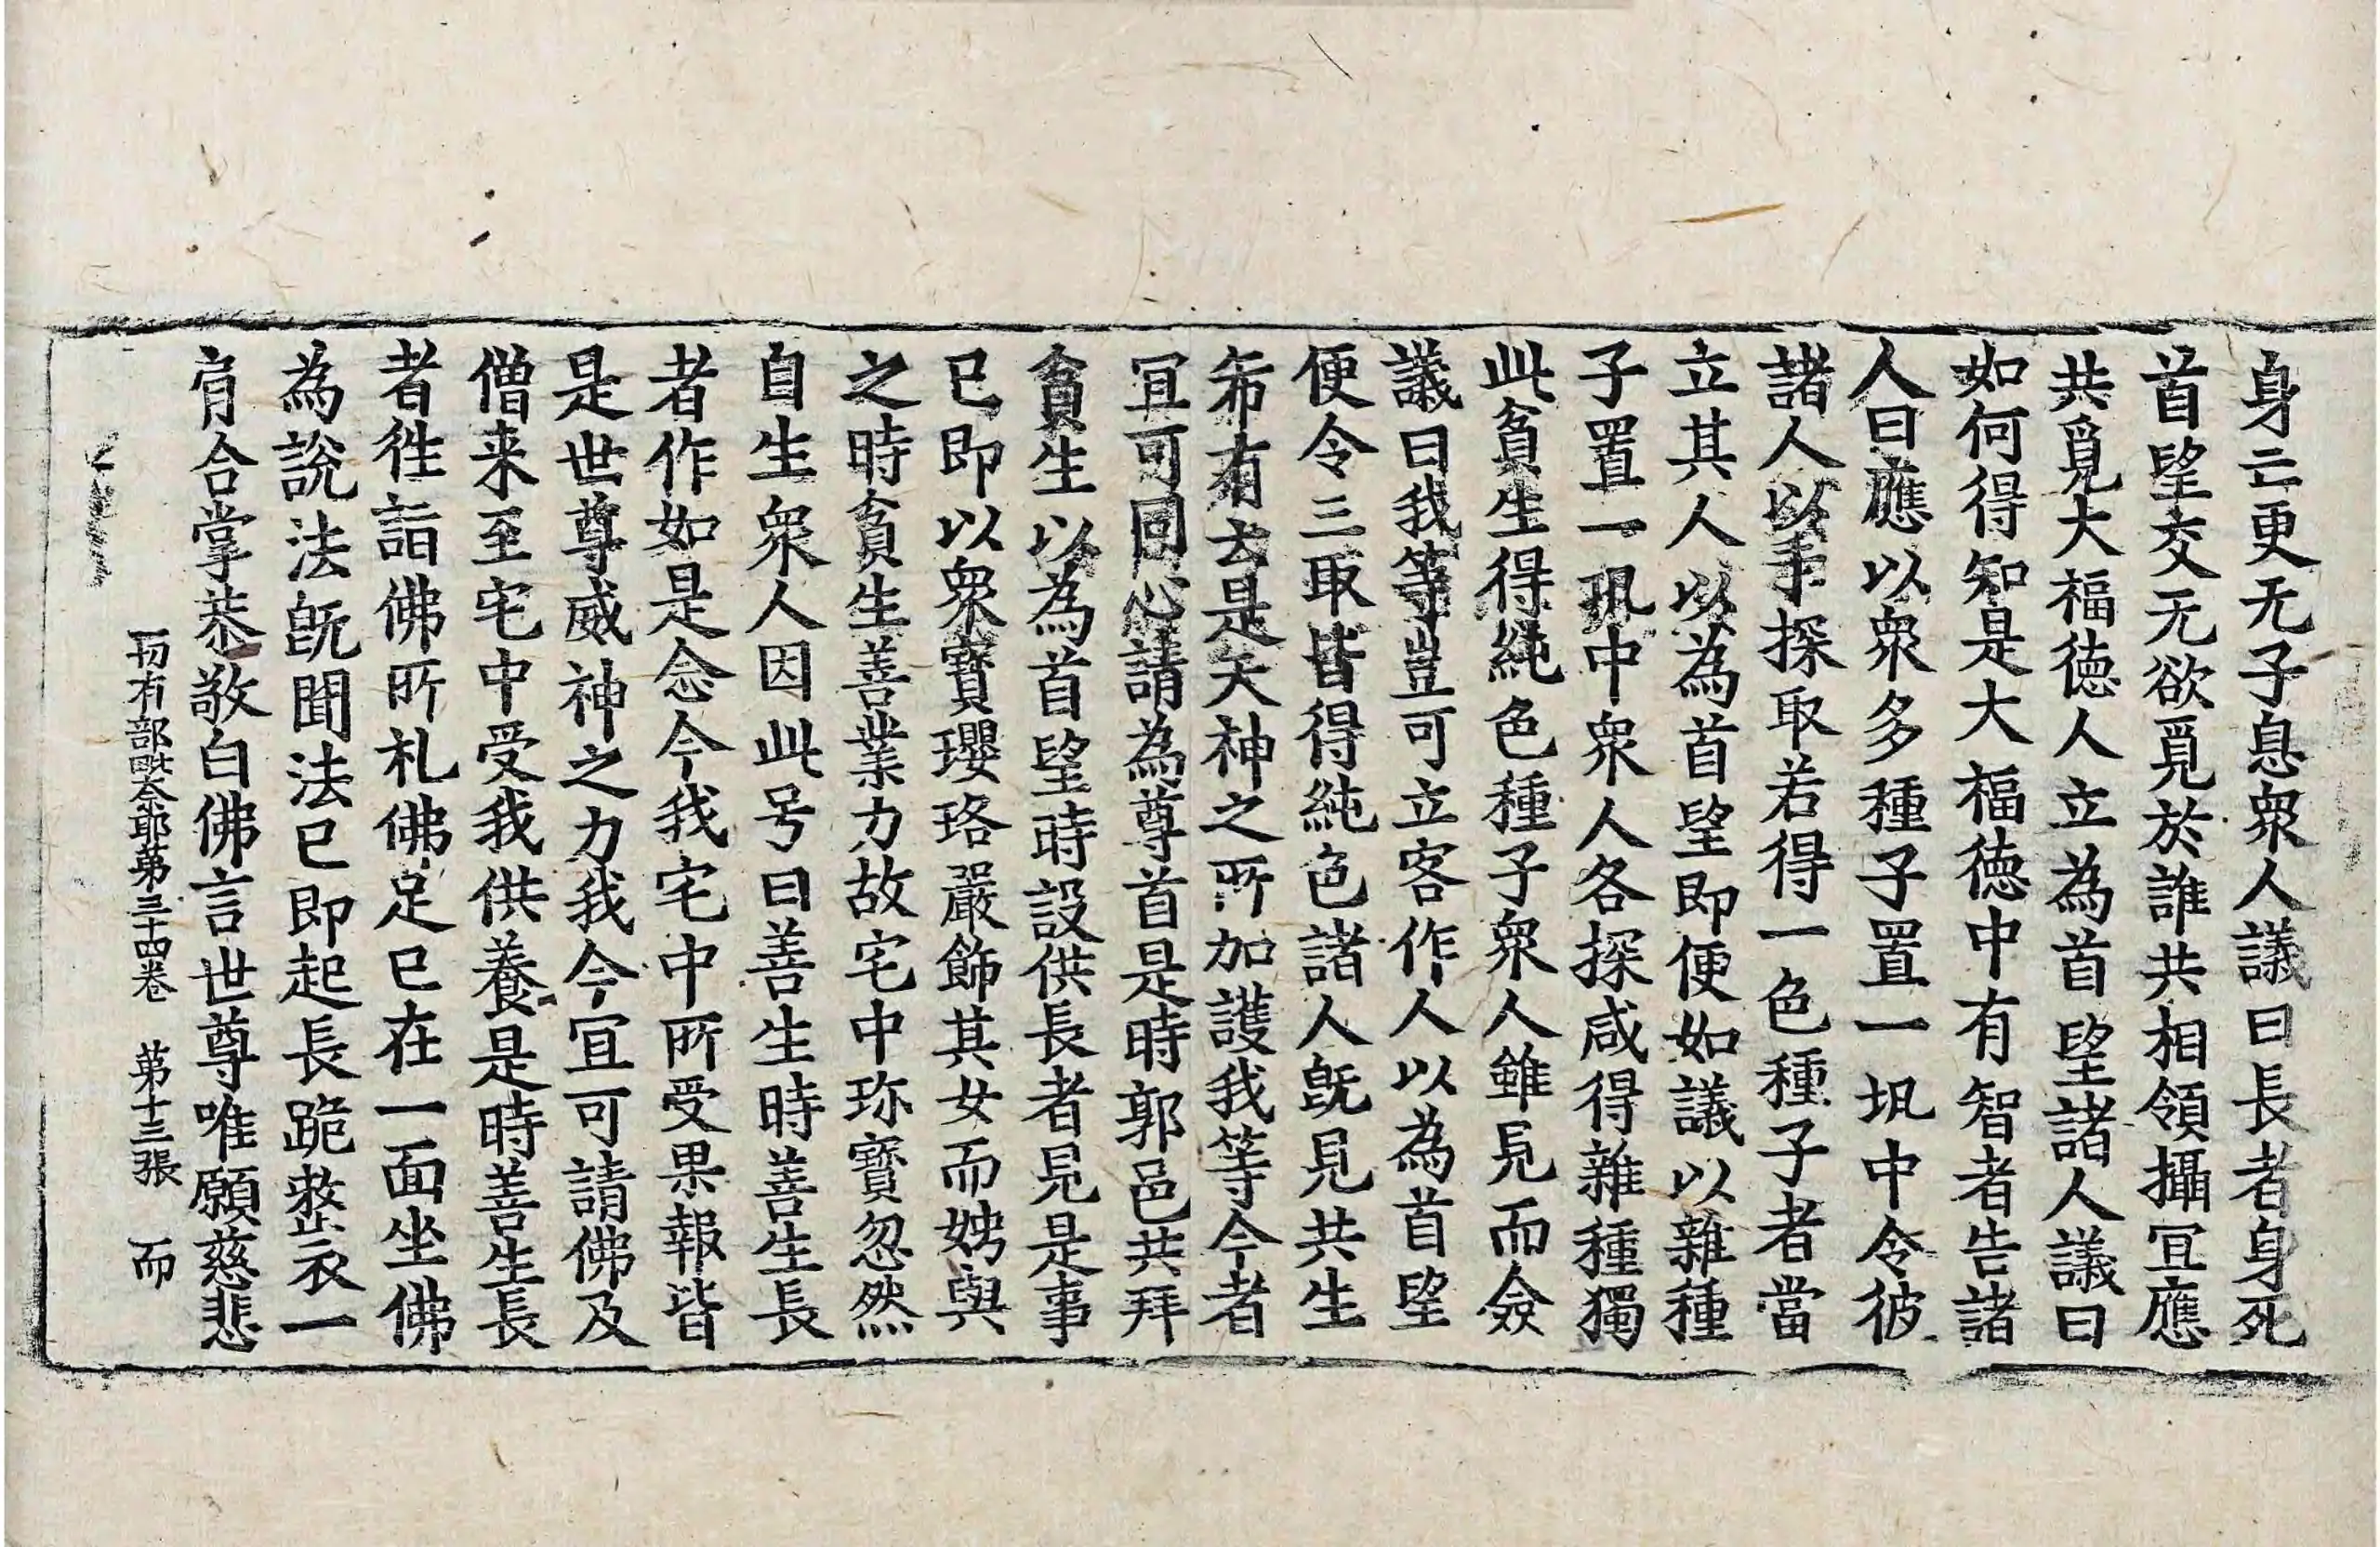 身亡更无子息衆人議曰長者身死
首望交无欲覓於誰共相領攝冝應
共覓大福徳人立為首望諸人議曰
如何得知是大福徳中有智者告諸
人曰應以衆多種子置一坈中令彼
諸人以手探取若得一色種子者當
立其人以為首望即便如議以雜種
子置一坈中衆人各探咸得雜種獨
此貧生得純色種子衆人雖見而僉
議曰我等豈可立客作人以為首望
便令三取皆得純色諸人旣見共生
希有去是天神之所加護我等今者
冝可同心請為尊首是時郭邑共拜
貧生以為首望時設供長者見是事
已即以衆寶瓔珞嚴飾其女而娉與
之時貧生善業力故宅中珎寶忽然
自生衆人因此号曰善生時善生長
者作如是念今我宅中所受果報皆
是世尊威神之力我今冝可請佛及
僧来至宅中受我供養是時善生長
者徃詣佛所札佛足已在一面坐佛
為說法旣聞法已即起長跪整衣一
肩合掌恭敬白佛言世尊唯願慈悲
一切有部毗奈耶第三十四卷 第十三張 而